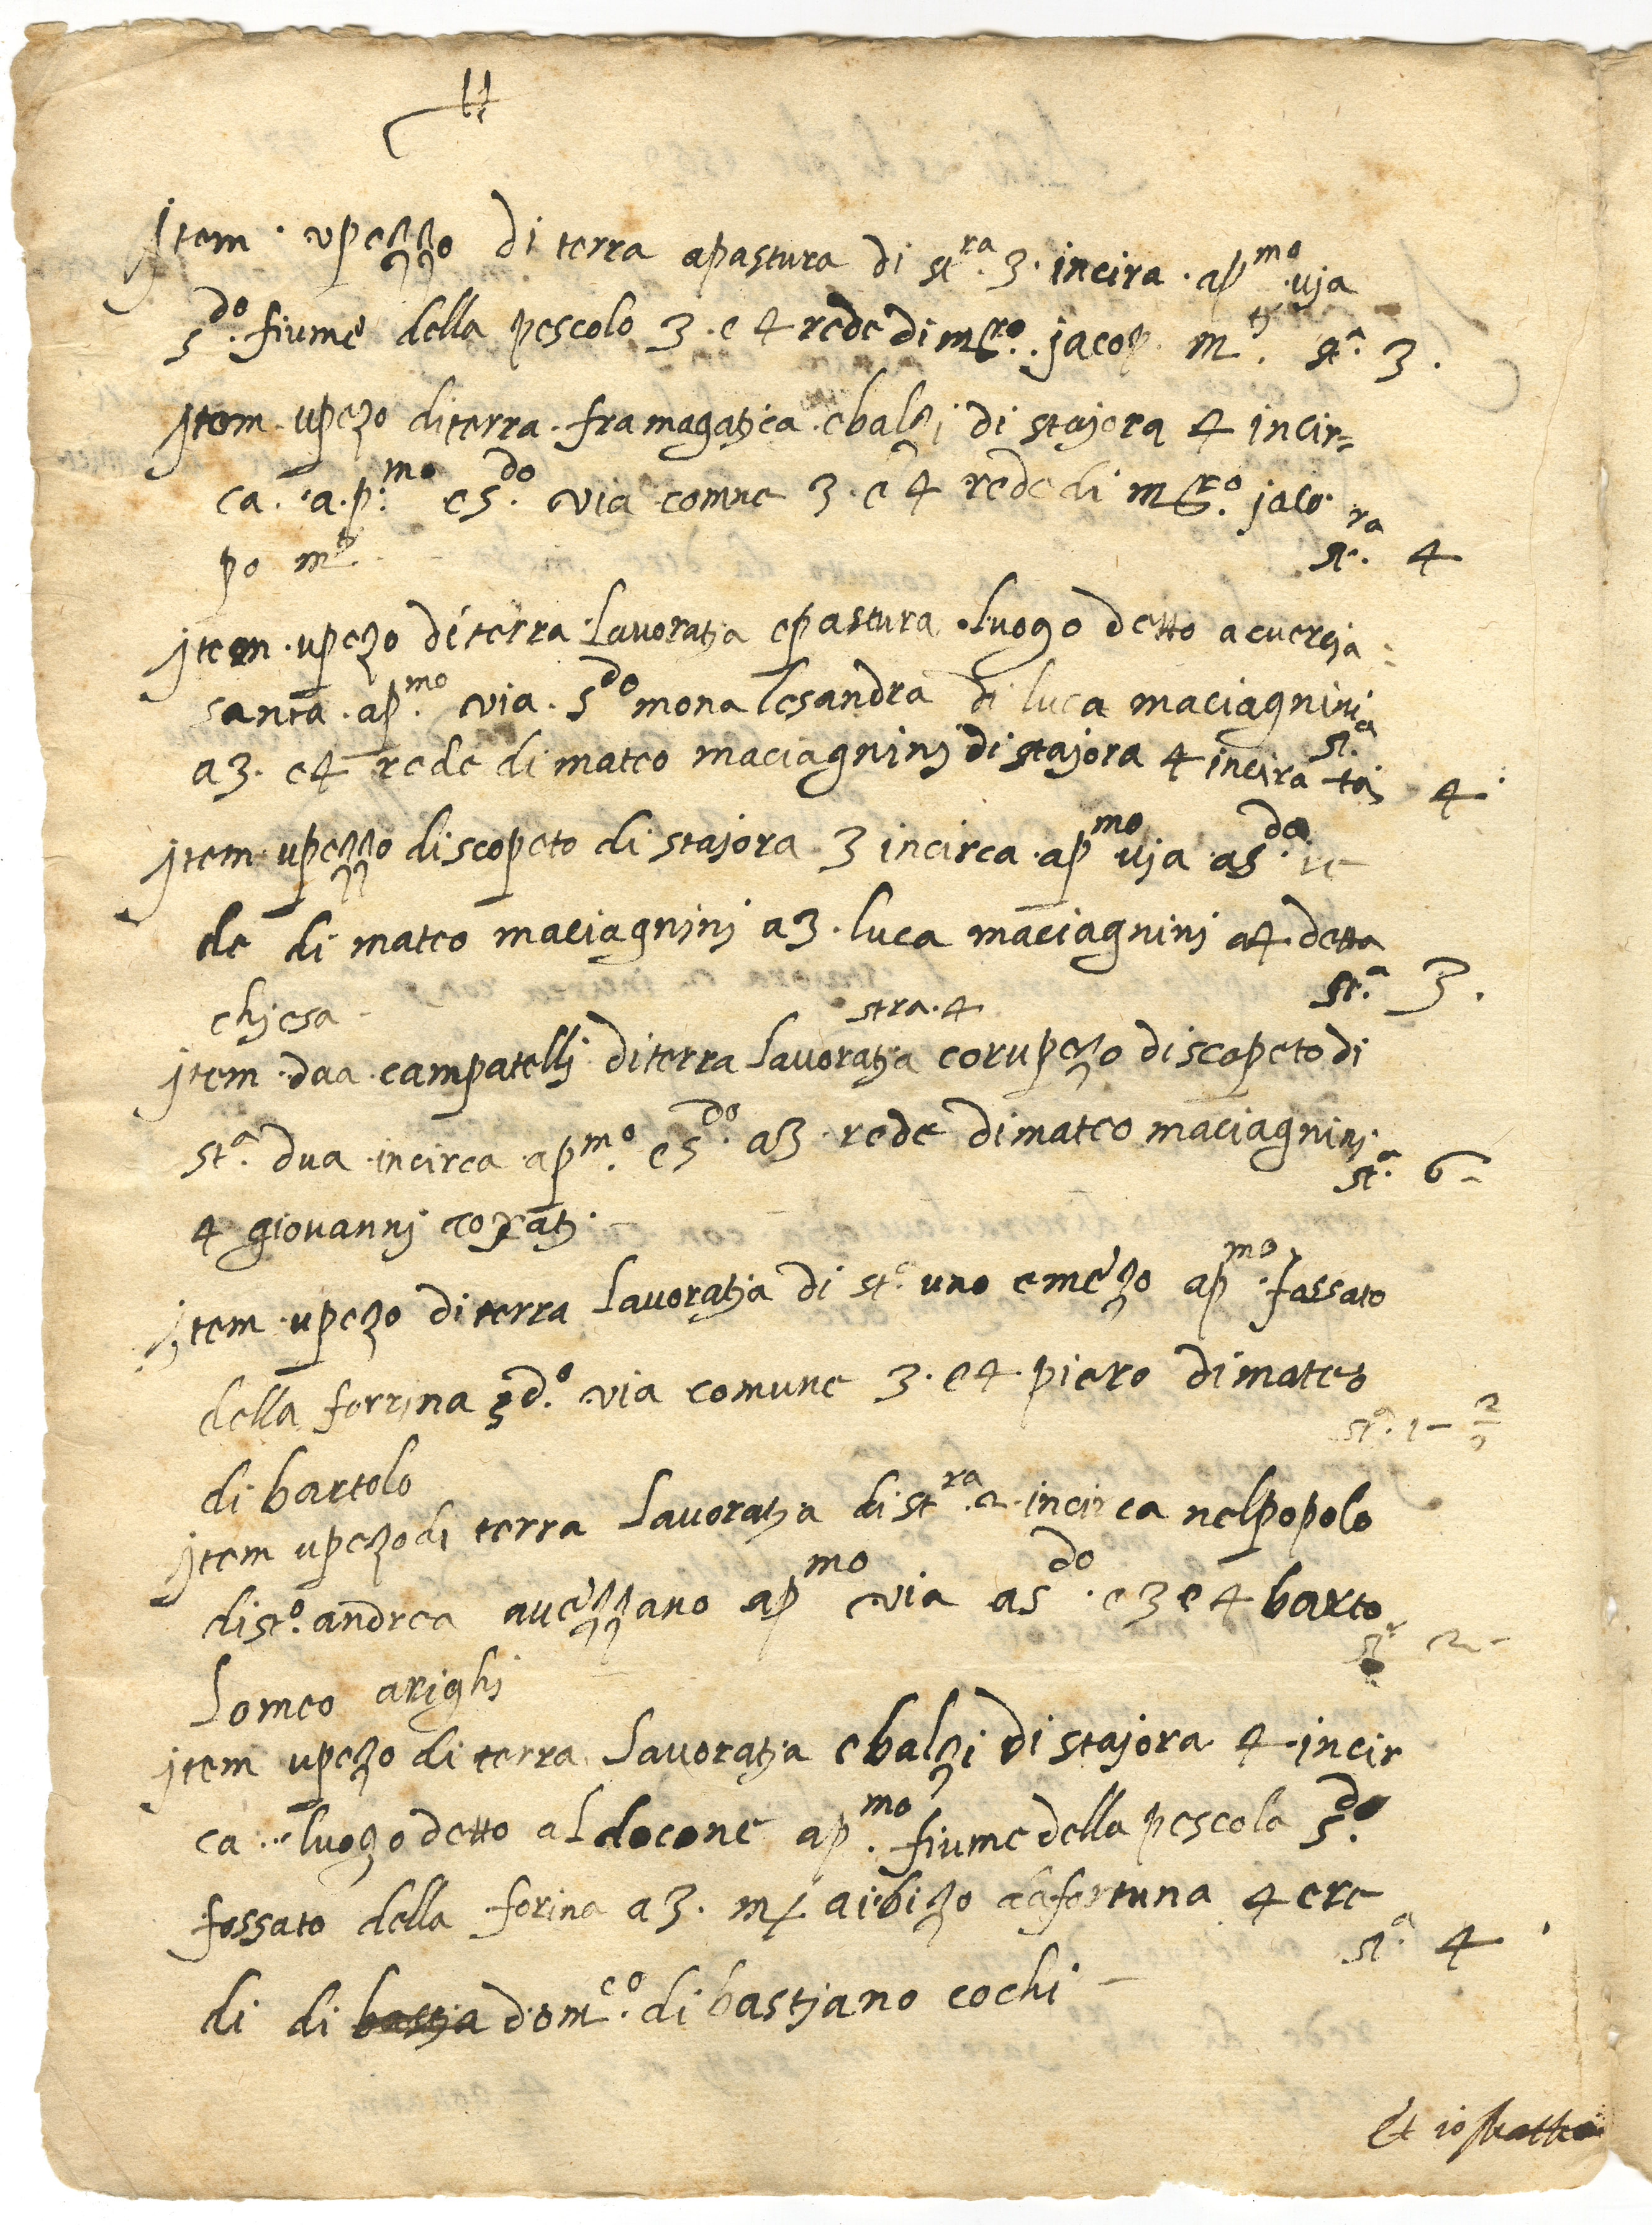 Jtem · upezzo di terra apastura di st.ra 3 · incira · ap.mo via
s.do fiume della pescolo 3 · e 4 rede di m.ro jacop. m.ti st.a 3 .
Jtom · upezo diterra · fra magatica · ebalzi di stajora 4 incir=
ca · a · p.mo e s.do via comne 3 · e 4 rede di m.ro jaco
po m.ti st.ra 4
Jtem · upezo di terra · lavoratia epastura · luogo detto acuercia
santa · ap.mo via · s.do mona lesandra di luca maciagnini
a 3 · e 4 rede di mateo maciagninj di stajora 4 incira st.a 4
Jtem upezzo di scopeto di stajora 3 incirca · ap.mo via · as.do re
de di mateo maciagninj a 3 · luca maciagnini a 4 detta
chjesa st.a 3 .
stra · 4
Jtem · dua · campatellj diterra lavoratia corupezo discopeto di
st.a dua · incirca ap.mo e s.do a 3 · rede dimateo maciagninj
4 giovannj st.a 6
Jtem · upezo di terra lavoratia di st.a uno emezo ap.mo fossato
della forrina sd.o via comune 3 · e 4 · piero dimateo
di bartolo st.a 1
Jtem upezo di terra lavoratia di st.ra 2 · incirca nelpopolo
dist.o andrea avezzano ap.mo via as.do e 3 e 4 barto
lomeo arighi st.a 2
Jtem upezo di terra lavoratia ebalzi di stajora 4 · incir
ca · luogo detto al docone ap.mo fiume della pescola s.do
fossato della forina a 3 · m aibizo dafortuna 4 ere
di di bastja dom.co di bastjano cochi st.a 4
Et io